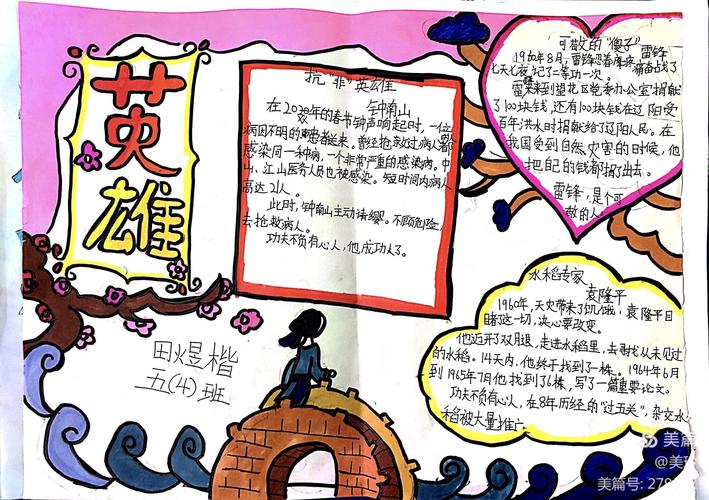 英雄
抗“非”英雄
钟南山
在2020年的春节钟声响起时，一位
病因不明的患者送来。曾经抢救过病人的
感染同一种病，一个非常严重的感染病。中
山、江山医务人员也被感染。短时间内病人
高达21人。
此时，钟南山主动请缨。不顾危险，
去抢救病人。
功夫不负有心人，他成功了。
可敬的“傻子”
雷锋
1960年8月，雷锋忍着疼痛
七天七夜，记了二等功一次。
雷锋来到望花区党委办公室捐献
了100块钱，还有100块钱在辽阳受
百年洪水时捐献给了辽阳人民。在
我国受到自然灾害的时候，他
把自己的钱都捐了出去。
雷锋，是个可
敬的人
水稻专家
袁隆平
1960年，天灾带来了饥饿，袁隆平目
睹这一切，决心要改变。
他迈开了双腿，走进水稻里，去寻找从未见过
的水稻。14天内，他终于找到了一株。1964年6月
到1965年7月他找到了6株，写了一篇重要论文。
功夫不负有心人，在8年历经的“过五关”，杂交水
稻被大量推广
田煜楷
五(4)班
美篇
@美
美篇号：27